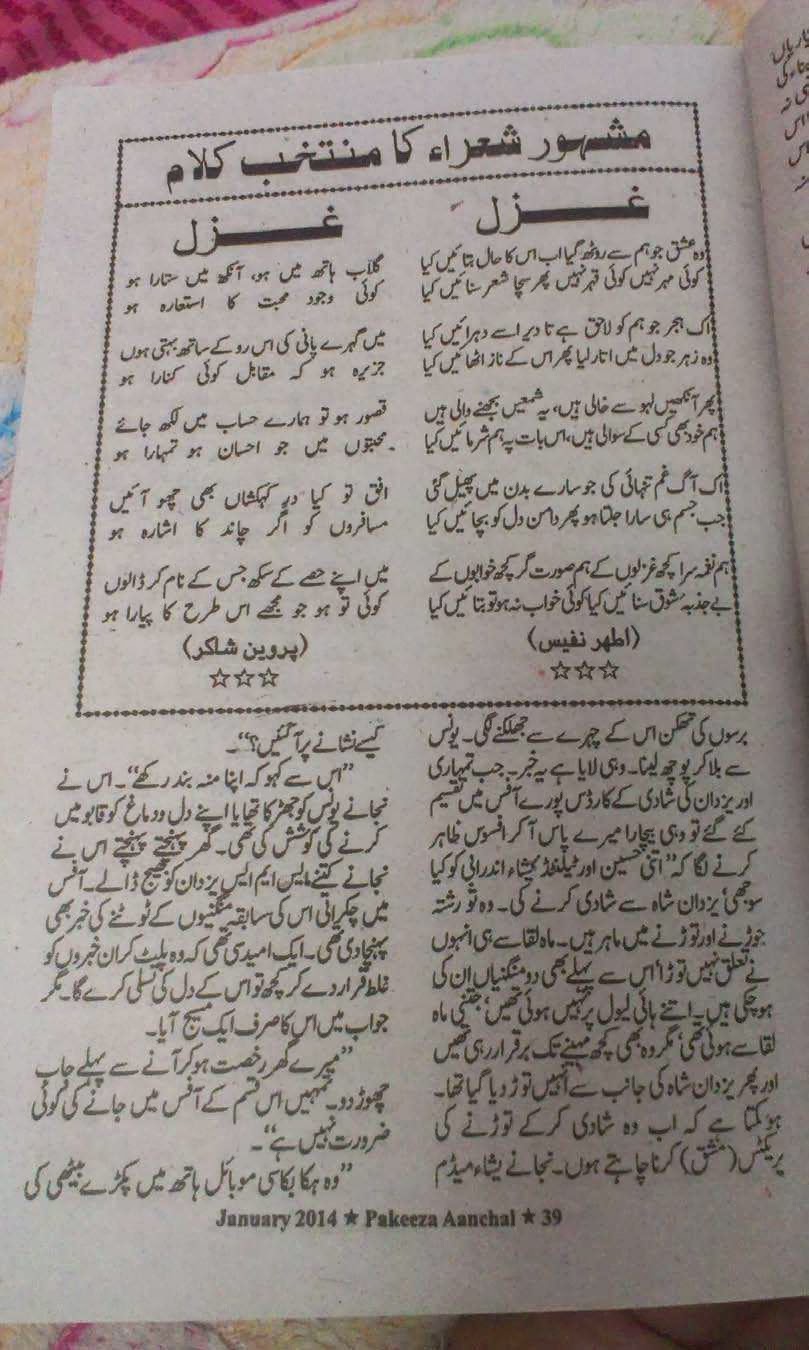 مشہور شعراء کا منتخب کلام
غزل
وہ عشق جو ہم سے روٹھ گیا اب اس کا حال بتائیں کیا
کوئی مہر نہیں کوئی قہر نہیں پھر سچا شعر سنائیں کیا
اک ہجر جو ہم کو لاحق ہے تا دیر اسے دہرائیں کیا
وہ زہر جو دل میں اتار لیا پھر اس کے ناز اٹھائیں کیا
پھر آنکھیں لہو سے خالی ہیں، یہ شمعیں بجھنے والی ہیں
ہم خود بھی کسی کے سوالی ہیں، اس بات پہ ہم شرمائیں کیا
اک آگ غم تنہائی کی جو سارے بدن میں پھیل گئی
جب جسم ہی سارا جلتا ہو پھر دامن دل کو بچائیں کیا
ہم نغمہ سرا کچھ غزلوں کے ہم صورت گر کچھ خوابوں کے
بے جذبہ شوق سنائیں کیا کوئی خواب نہ ہو تو بتائیں کیا
(اطہر نفیس)
☆☆☆
غزل
گلاب ہاتھ میں ہو، آنکھ میں ستارا ہو
کوئی وجود محبت کا استعارہ ہو
میں گہرے پانی کی اس رو کے ساتھ بہتی ہوں
جزیرہ ہو کہ مقابل کوئی کنارا ہو
قصور ہو تو ہمارے حساب میں لکھ جائے
محبتوں میں جو احسان ہو تمہارا ہو
افق تو کیا در کہکشاں بھی چھو آئیں
مسافروں کو اگر چاند کا اشارہ ہو
میں اپنے حصے کے سکھ جس کے نام کر ڈالوں
کوئی تو ہو جو مجھے اس طرح کا پیارا ہو
(پروین شاکر)
☆☆☆
برسوں کی تھکن اس کے چہرے سے جھلکنے لگی۔ یونس
سے بلا کر پوچھ لینا۔ وہی لایا ہے یہ خبر۔ جب تمہاری
اور یزدان کی شادی کے کارڈس پورے آفس میں تقسیم
کئے گئے تو وہی بیچارا میرے پاس آ کر افسوس ظاہر
کرنے لگا کہ ”اتنی حسین اور ٹیلنٹڈ یشاء اندرابی کو کیا
سوجھی یزدان شاہ سے شادی کرنے کی۔ وہ تو رشتہ
جوڑنے اور توڑنے میں ماہر ہیں۔ ماہ لقا سے ہی انہوں
نے تعلق نہیں توڑا‘ اس سے پہلے بھی دو منگنیاں ان کی
ہو چکی ہیں۔ اتنے ہائی لیول پر نہیں ہوئی تھیں‘ جتنی ماہ
لقا سے ہوئی تھی‘ مگر وہ بھی کچھ مہینے تک برقرار رہی تھیں
اور پھر یزدان شاہ کی جانب سے انہیں توڑ دیا گیا تھا۔
ہو سکتا ہے کہ اب وہ شادی کر کے توڑنے کی
پریکٹس (مشق) کرنا چاہتے ہوں۔ نجانے یشاء میڈم
کیسے نشانے پر آ گئیں؟“۔
”اس سے کہو کہ اپنا منہ بند رکھے“۔ اس نے
نجانے یونس کو جھڑکا تھا یا اپنے دل و دماغ کو قابو میں
کرنے کی کوشش کی تھی۔ گھر پہنچتے پہنچتے اس نے
نجانے کتنے ایس ایم ایس یزدان کو بھیج ڈالے۔ آفس
میں چکراتی اس کی سابقہ منگنیوں کے ٹوٹنے کی خبر بھی
پہنچا دی تھی۔ ایک امید سی تھی کہ وہ پلٹ کر ان خبروں کو
غلط قرار دے کر کچھ تو اس کے دل کی تسلی کرے گا۔ مگر
جواب میں اس کا صرف ایک مسیج آیا۔
”میرے گھر رخصت ہو کر آنے سے پہلے جاب
چھوڑ دو۔ تمہیں اس قسم کے آفس میں جانے کی کوئی
ضرورت نہیں ہے“۔
”وہ ہکا بکا سی موبائل ہاتھ میں پکڑے بیٹھی کی
January 2014 ★ Pakeeza Aanchal ★ 39